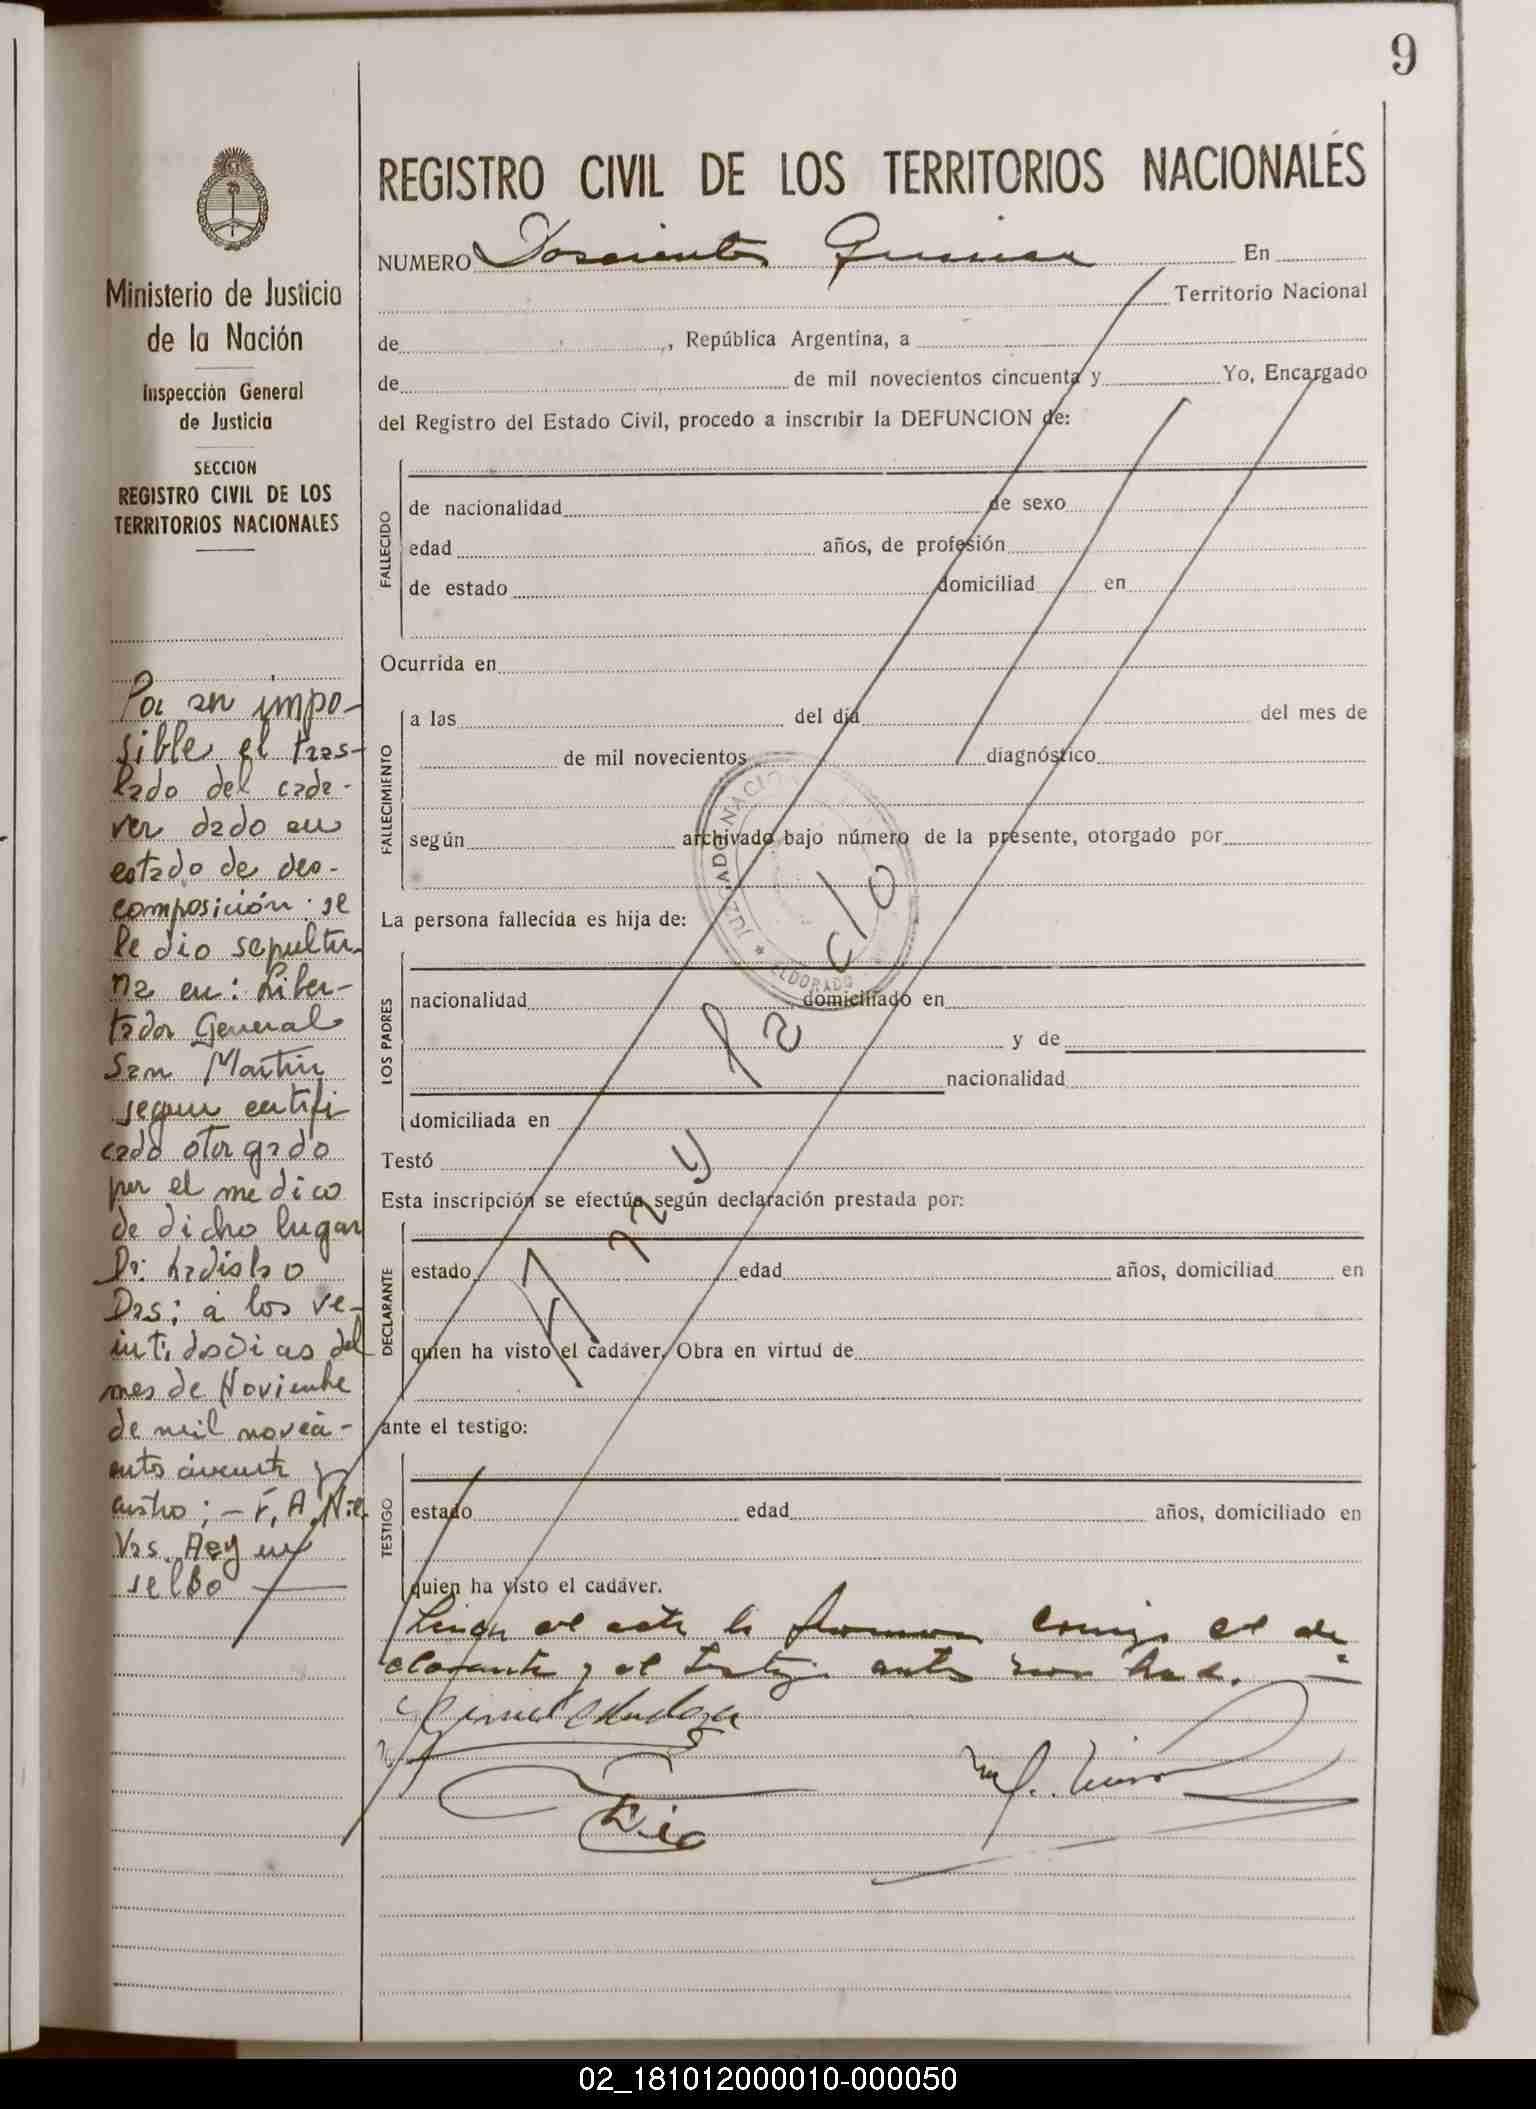 9
REGISTRO CIVIL DE LOS TERRITORIOS NACIONALES
NUMERO Doscientos En
Territorio Nacional
de , República Argentina, a
de de mil novecientos cincuenta y Yo, Encargado
del Registro del Estado Civil, procedo a inscribir la DEFUNCION de:
FALLECIDO
de nacionalidad de sexo
edad años, de profesión
de estado domiciliad en
Ocurrida en
FALLECIMIENTO
a las del día del mes de
de mil novecientos diagnóstico
según archivado bajo número de la presente, otorgado por
La persona fallecida es hija de:
LOS PADRES
nacionalidad domiciliado en
y de
nacionalidad
domiciliada en
Testó
Esta inscripción se efectúa según declaración prestada por:
DECLARANTE
estado edad años, domiciliad en
quien ha visto el cadáver. Obra en virtud de
ante el testigo:
TESTIGO
estado edad años, domiciliado en
quien ha visto el cadáver.
el acta la conmigo el de
clarante y el testigo
JUZGADO NACIO
ELDORADO
Ministerio de Justicia
de la Nación
Inspección General
de Justicia
SECCION
REGISTRO CIVIL DE LOS
TERRITORIOS NACIONALES
Por impo-
sible el tras-
lado del cada-
ver dado en
estado de des-
composición: se
le dio sepultu-
ra en: Liber-
tador General
San Martin
segun certifi
cado otorgado
por el medico
de dicho lugar
Dr: Ladislao
Das; a los ve-
inti dos dias del
mes de Noviembre
de mil noveci-
entos cincuenta y
cuatro; - F, A, Nie
vas.
02_181012000010-000050